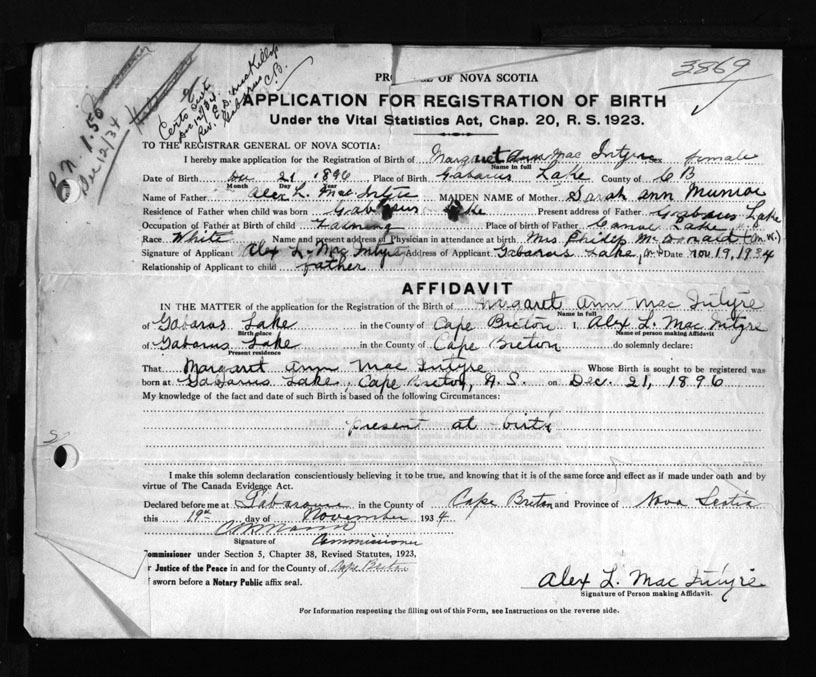 3869
P.N. 1.50
Dec 12/34
Certo
Dec 12/34
Rev. E. D.
Gabarus C.B.
PRO E OF NOVA SCOTIA
APPLICATION FOR REGISTRATION OF BIRTH
Under the Vital Statistics Act, Chap. 20, R. S. 1923.
TO THE REGISTRAR GENERAL OF NOVA SCOTIA:
I hereby make application for the Registration of Birth of Margaret Ann Mac Intyre Sex female
Name in full
Date of Birth Dec 21 1896 Place of Birth Gabarus Lake County of C B
Month Day Year
Name of Father Alex L. Mac Intyre MAIDEN NAME of Mother Sarah Ann Munroe
Residence of Father when child was born Gabarus Lake Present address of Father Gabarus Lake
Occupation of Father at Birth of child Farming Place of birth of Father Lake
Race White Name and present address of Physician in attendance at birth Mrs. Philip
Signature of Applicant Alex L. Mac Intyre Address of Applicant Gabarus Lake, Date Nov. 19, 1934
Relationship of Applicant to child father
AFFIDAVIT
IN THE MATTER of the application for the Registration of the Birth of Margaret Ann Mac Intyre
Name in full
of Gabarus Lake in the County of Cape Breton I, Alex L. Mac Intyre
Birth place Name of person making Affidavit
of Gabarus Lake in the County of Cape Breton do solemnly declare:
Present residence
That Margaret Ann Mac Intyre Whose Birth is sought to be registered was
born at Gabarus Lake, Cape Breton, N.S. on Dec. 21, 1896
My knowledge of the fact and date of such Birth is based on the following Circumstances:
present at birth
I make this solemn declaration conscientiously believing it to be true, and knowing that it is of the same force and effect as if made under oath and by
virtue of The Canada Evidence Act.
Declared before me at Gabarus in the County of Cape Breton and Province of Nova Scotia
this 19th day of November 1934
Signature of Commissioner
Commissioner under Section 5, Chapter 38, Revised Statutes, 1923,
r Justice of the Peace in and for the County of Cape Breton
f sworn before a Notary Public affix seal.
Alex L. Mac Intyre
Signature of Person making Affidavit.
For Information respecting the filling out of this Form, see Instructions on the reverse side.